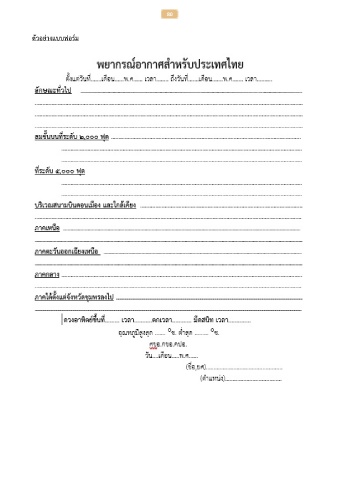 ตัวอย่างแบบฟอร์ม
พยากรณ์อากาศสำหรับประเทศไทย
ตั้งแต่วันที่......เดือน......พ.ศ...... เวลา........ ถึงวันที่......เดือน.......พ.ศ....... เวลา.........
ลักษณะทั่วไป
ลมชั้นบนที่ระดับ ๒,๐๐๐ ฟุต
ที่ระดับ ๕,๐๐๐ ฟุต
บริเวณสนามบินดอนเมือง และใกล้เคียง
ภาคเหนือ
ภาคตะวันออกเฉียงเหนือ
ภาคกลาง
ภาคใต้ตั้งแต่จังหวัดชุมพรลงไป
ดวงอาทิตย์ขึ้นที่......... เวลา...........ตกเวลา........... มืดสนิท เวลา.............
อุณหภูมิสูงสุด ...... °ซ. ต่ำสุด ........ °ซ.
ศขอ.กขอ.คปอ.
วัน....เดือน.....พ.ศ......
(ชื่อ,ยศ)
(ตำแหน่ง)